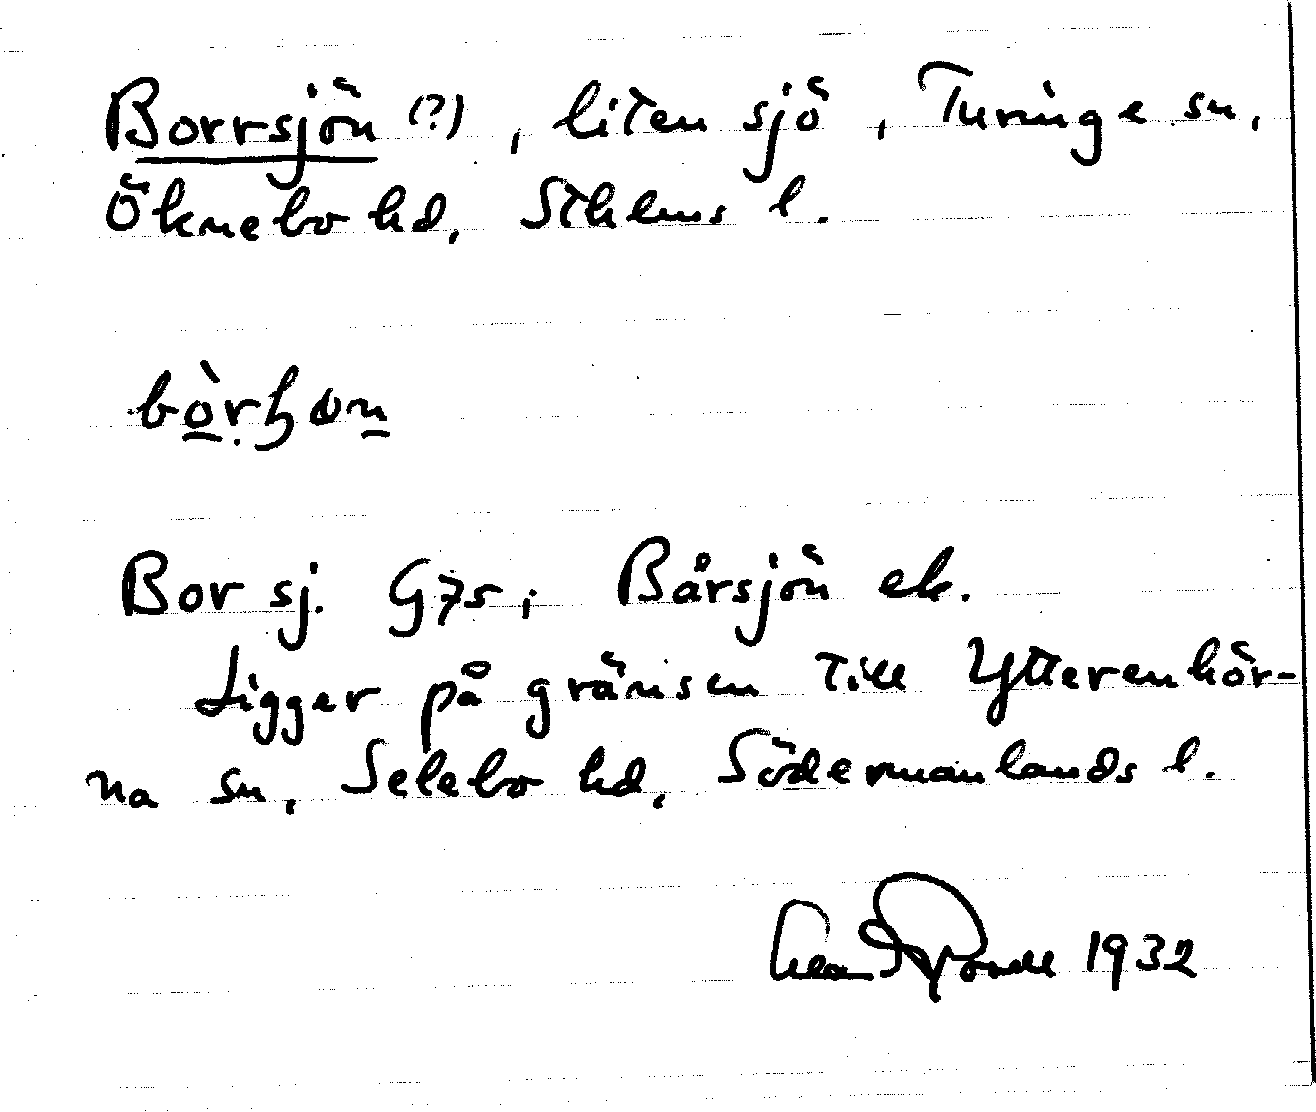 Borrsjön (?), liten sjö, Turinge sn,
Öknebo hd, Sthlms l.
Bor sj. G7s; Bårsjön ek.
Ligger på gränsen till Ytterenhör-
na sn, Selebo hd, Södermanlands l.
1932